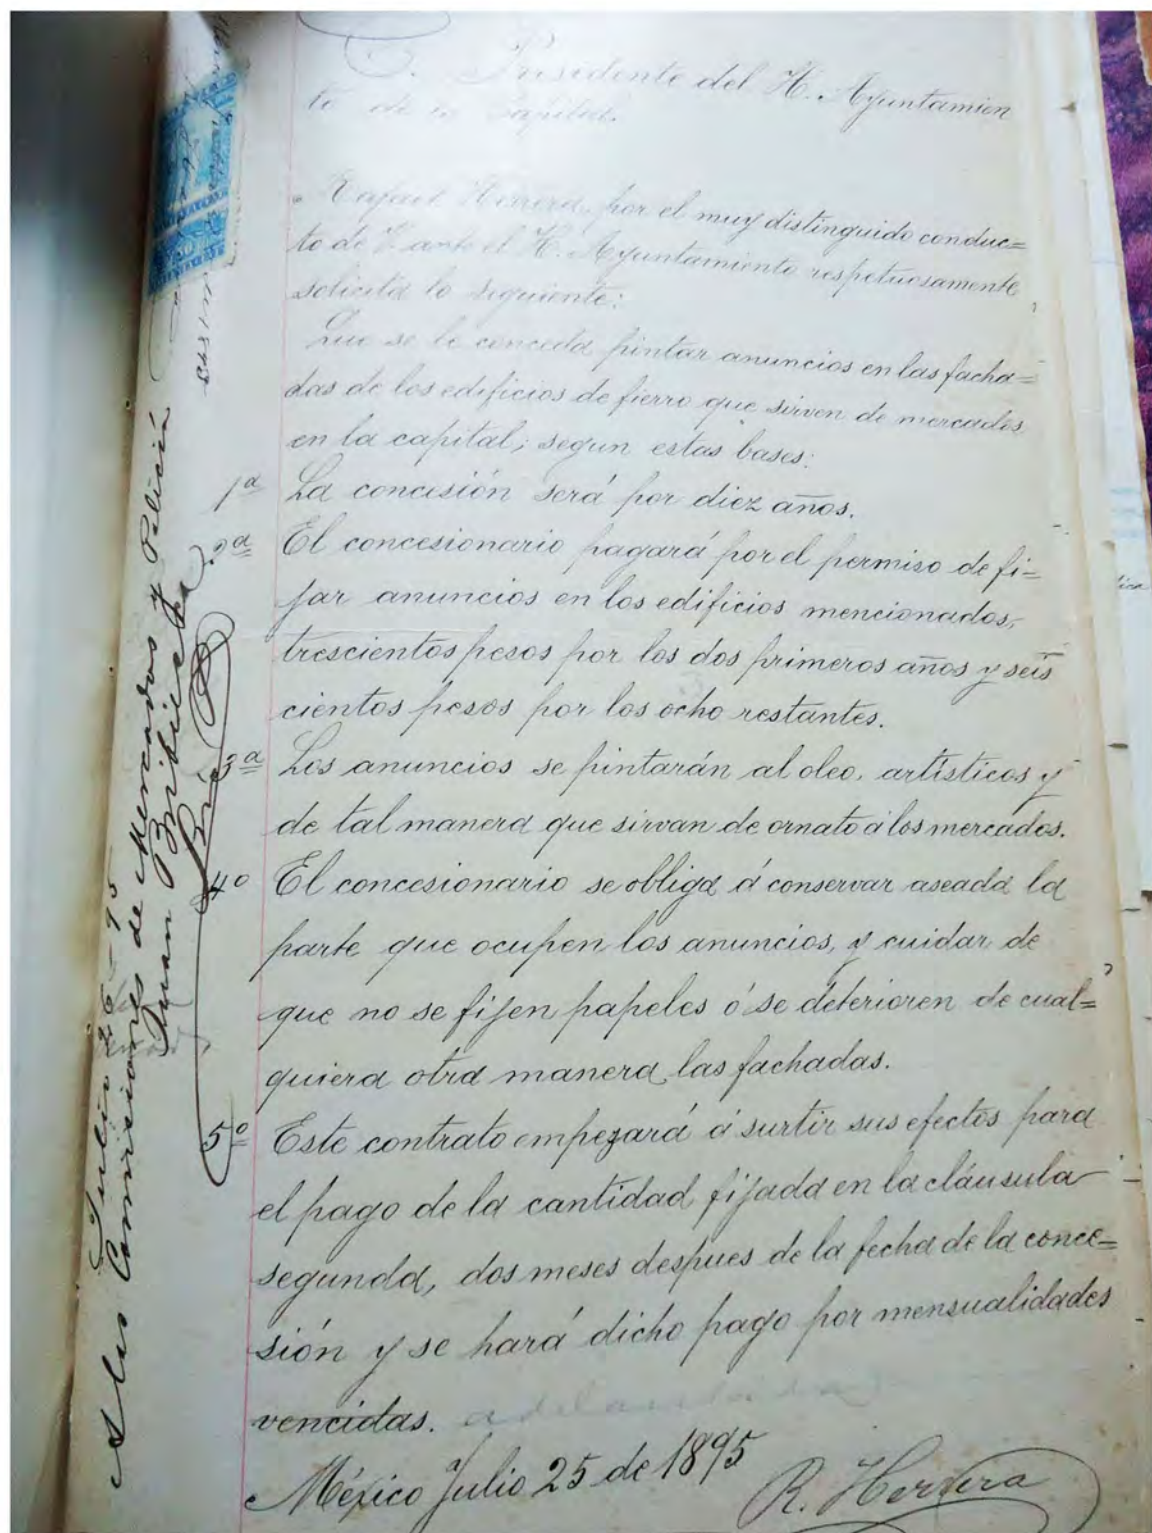 C. Presidente del H. Ayuntamien
to de la capital.
Rafael Herrera, por el muy distinguido conduc=
to de V. ante el H. Ayuntamiento respetuosamente
solicita lo siguiente:
Que se le conceda pintar anuncios en las facha=
das de los edificios de fierro que sirven de mercados
en la capital; segun estas bases:
1ª La concesión será por diez años.
2ª El concesionario pagará por el permiso de fi=
jar anuncios en los edificios mencionados,
trescientos pesos por los dos primeros años y seis
cientos pesos por los ocho restantes.
3ª Los anuncios se pintarán al oleo, artísticos y
de tal manera que sirvan de ornato á los mercados.
4º El concesionario se obliga á conservar aseada la
parte que ocupen los anuncios, y cuidar de
que no se fijen papeles ó se deterioren de cual=
quiera otra manera las fachadas.
5º Este contrato empezará á surtir sus efectos para
el pago de la cantidad fijada en la cláusula
segunda, dos meses despues de la fecha de la conce=
sión y se hará dicho pago por mensualidades
vencidas. adelantadas
México Julio 25 de 1895
R. Herrera
Julio 26-95
A las Comisiones de Mercados y Policía
Juan Bribiesca
Srio